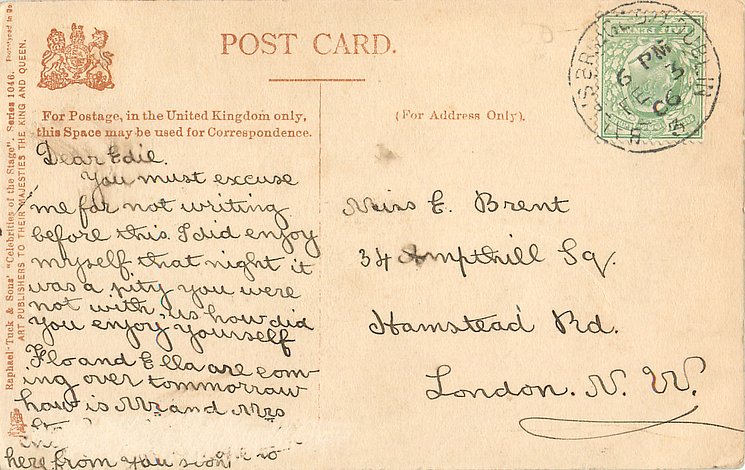 POST CARD.
For Postage, in the United Kingdom only,
this Space may be used for Correspondence.
(For Address Only).
Raphael Tuck & Sons' "Celebrities of the Stage". Series 1046.
ART PUBLISHERS TO THEIR MAJESTIES THE KING AND QUEEN.
6 PM
FE 3
06
Dear Edie.
You must excuse
me for not writing
before this. I did enjoy
myself that night it
was a pity you were
not with us how did
you enjoy yourself
Flo and Ella are com
ing over tommorraw
how is Mr and Mrs
here from you soon
Miss E. Brent
34 Ampthill Sq.
Hamstead Rd.
London. N. W.